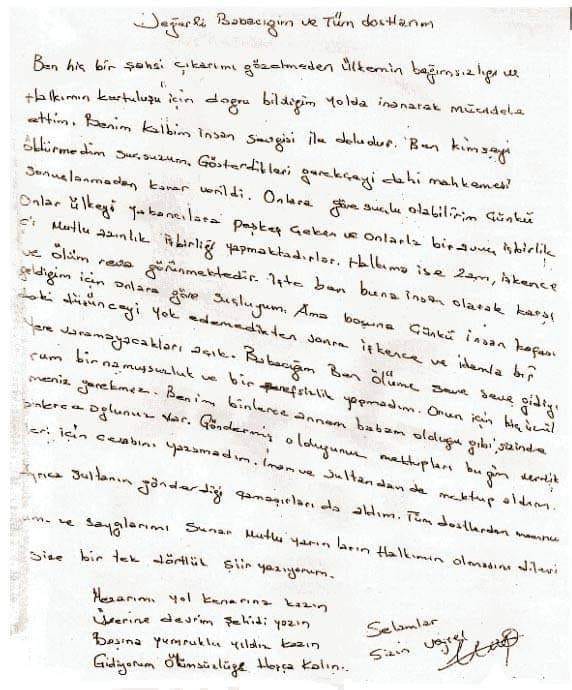 Değerli Babacığım ve Tüm dostlarım
Ben hiç bir şahsi çıkarımı gözetmeden ülkemin bağımsızlığı ve
Halkımın kurtuluşu için doğru bildiğim yolda inanarak mücadele
ettim. Benim kalbim insan sevgisi ile doludur. Ben kimseyi
öldürmedim suçsuzum. Gösterdikleri gerekçeyi dahi mahkemesi
sonuçlanmadan karar verildi. Onlara göre suçlu olabilirim Çünkü
Onlar ülkeyi yabancılara peşkeş çeken ve onlarla bir avuç işbirlik
çi Mutlu azınlık işbirliği yapmaktadırlar. Halkıma ise zam, işkence
ve ölüm reva görünmektedir. İşte ben buna insan olarak karşı
geldiğim için onlara göre suçluyum. Ama boşuna Çünkü insan kafası
daki düşünceyi yok edemedikten sonra işkence ve idamla bir
yere varamayacakları açık. Babacığım Ben ölüme seve seve gidiyo
rum bir namussuzluk ve bir şerefsizlik yapmadım. Onun için hiç üzül
meniz gerekmez. Benim binlerce annem babam olduğu gibi sizinde
binlerce oğlunuz var. Göndermiş olduğunuz mektupları bugün verdik
leri için cevabını yazamadım. İman ve sultandan da mektup aldım.
Ayrıca sultanın gönderdiği çamaşırları da aldım. Tüm dostlardan memnu
num ve saygılarımı sunar Mutlu yarın ların Halkımın olmasını diler
size bir tek dörtlük şiir yazıyorum.
Mezarımı yol kenarına kazın
Üzerine devrim şehidi yazın
Başına yumruklu yıldız kazın
Gidiyorum Ölümsüzlüğe Hoşça kalın.
Selamlar
Sizin Veysel